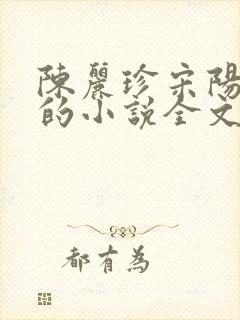 陳麗珍宋陽
的小說全文
都有為